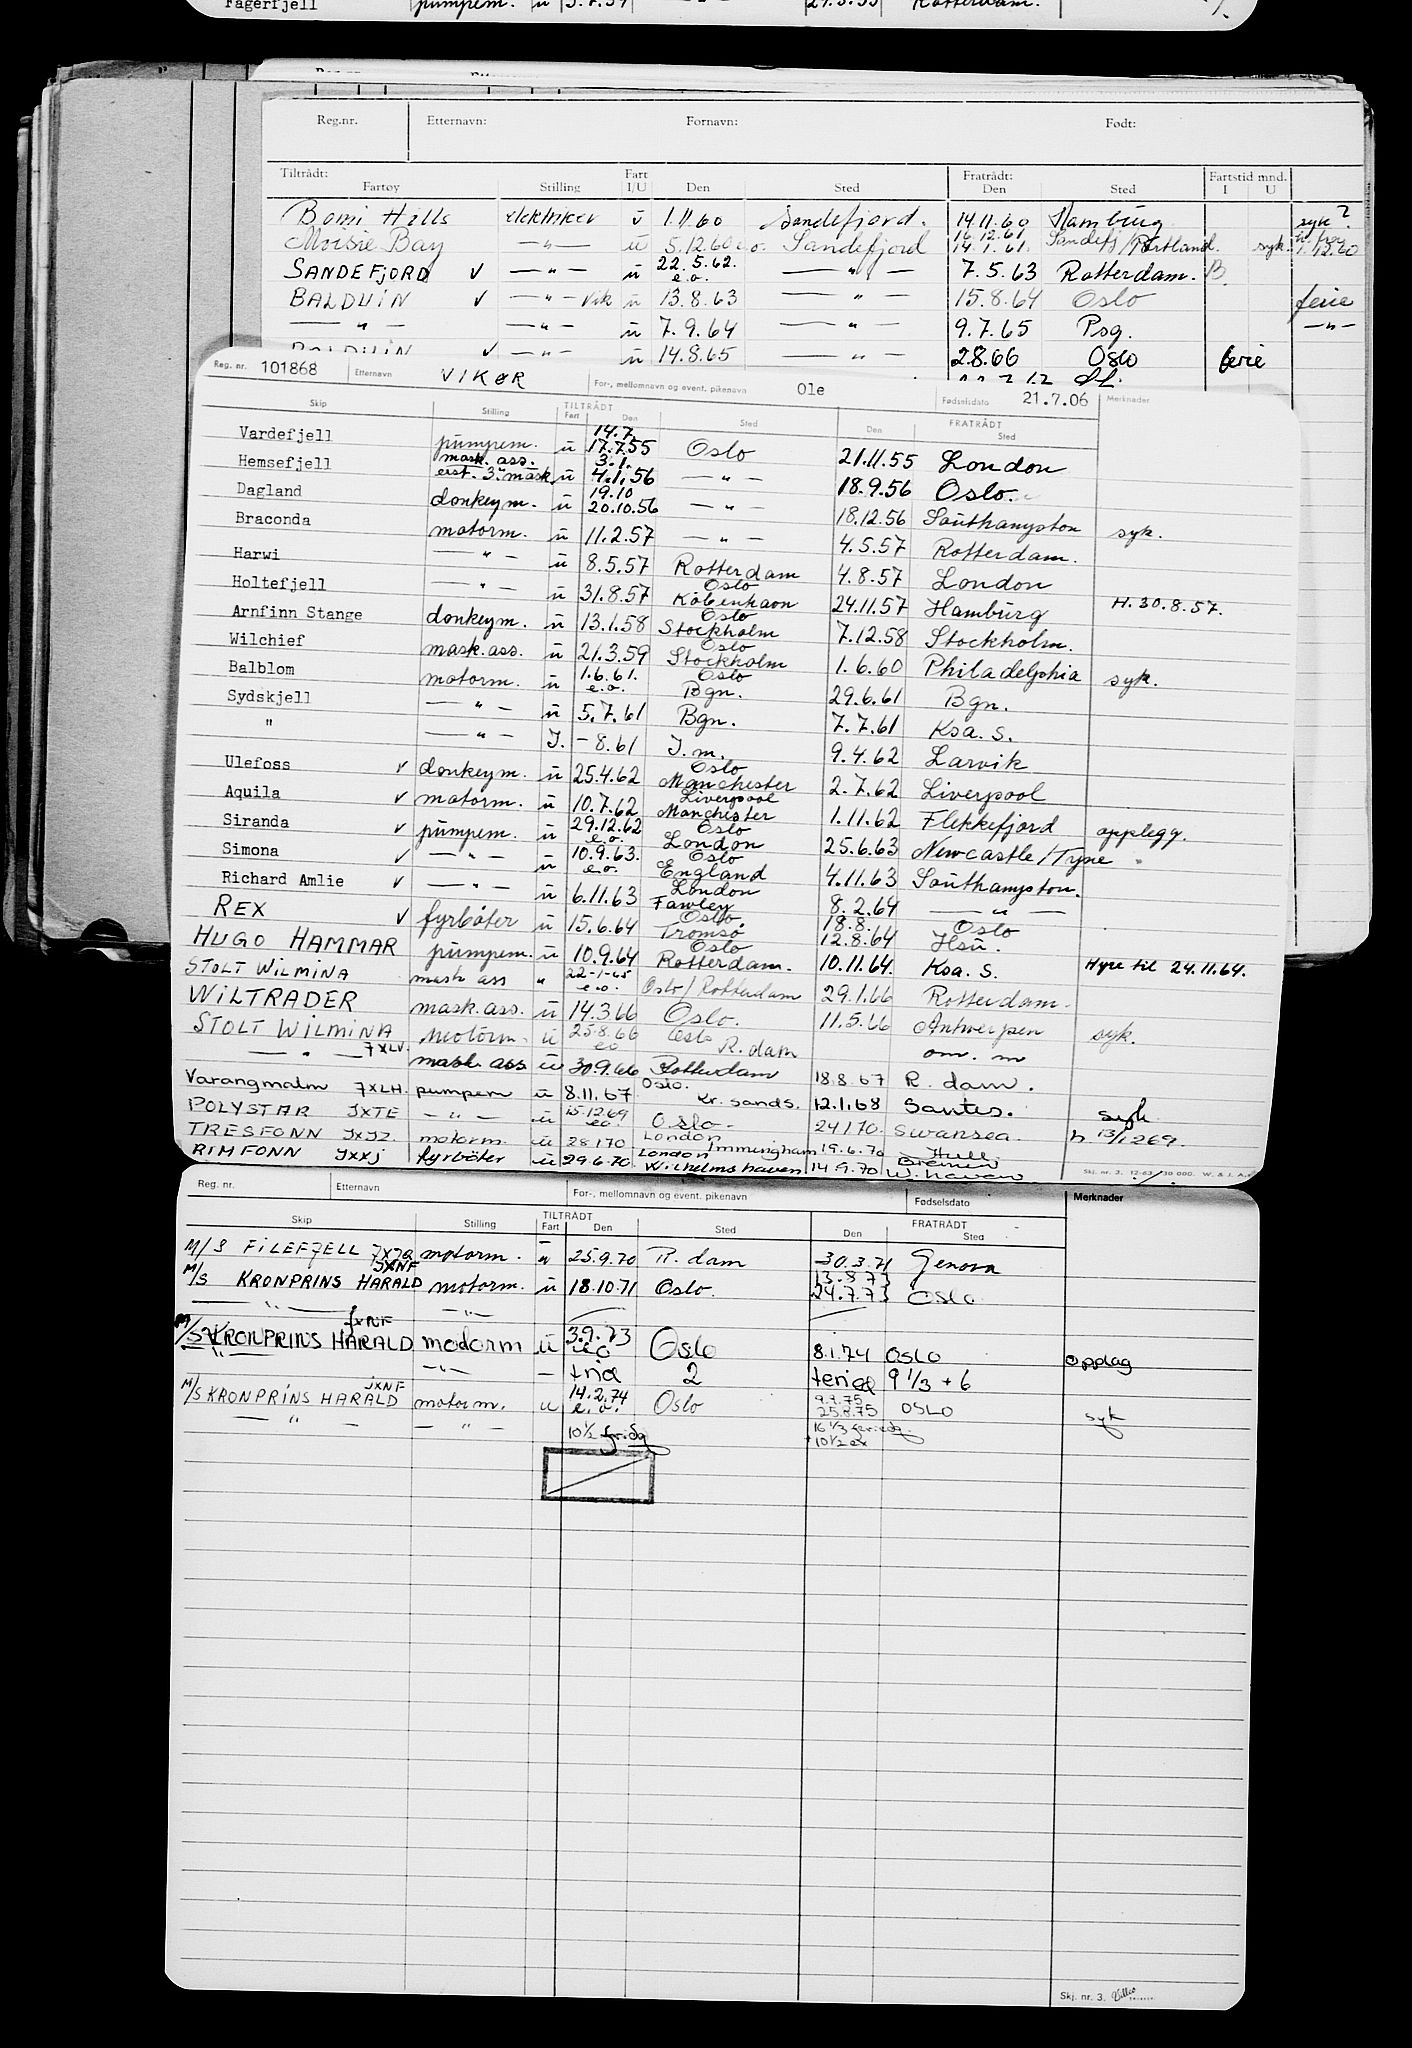 Fagerfjell pumpem. ü Rotterdam.
Reg.nr. Etternavn: Fornavn: Født:
Tiltrådt: Fratrådt: Fartstid mnd.
Fartøy Stilling Fart I/U Den Sted Den Sted I U
Bomi Hills elektriker ü 1.11.60 Sandefjord. 14.11.60 Hamburg syk?
16.12.61
Moisie Bay —"— ü 5.12.60 e.o. Sandefjord 14.1.61. Sandefj/Portland. syk. 1.12.60
SANDEFJORD v —"— ü 22.5.62. e.o. —"— 7.5.63 Rotterdam. B.
BALDUIN v —"— vik ü 13.8.63 —"— 15.8.64 Oslo ferie
—"— —"— ü 7.9.64 —"— 9.7.65 Psg. —"—
BALDUIN v —"— ü 14.8.65 —"— 2.8.66 Oslo ferie
Reg. nr. 101868 Etternavn VIKØR For-, mellomnavn og event. pikenavn Ole Fødselsdato 21.7.06 Merknader
Skip Stilling TILTRÅDT Fart Den Sted Den FRATRÅDT Sted
14.7.
Vardefjell pumpem. ü 17.7.55 Oslo 21.11.55 London
mask. ass. 3.1.
Hemsefjell eist. 3. mask. ü 4.1.56 —"— 18.9.56 Oslo.
19.10
Dagland donkeym. ü 20.10.56 —"— 18.12.56 Southampton syk.
Braconda motorm. ü 11.2.57 —"— 4.5.57 Rotterdam.
Harwi —"— ü 8.5.57 Rotterdam 4.8.57 London
Oslo
Holtefjell —"— ü 31.8.57 København 24.11.57 Hamburg H. 30.8.57.
Oslo
Arnfinn Stange donkeym. ü 13.1.58 Stockholm 7.12.58 Stockholm.
Oslo
Wilchief mask.ass. ü 21.3.59 Stockholm 1.6.60 Philadelphia syk.
1.6.61. Oslo
Balblom motorm. ü e.o. Bgn. 29.6.61 Bgn.
Sydskjell —"— ü 5.7.61 Bgn. 7.7.61 Ksa. S.
" —"— I. - 8.61 I.m. 9.4.62 Larvik
Oslo
Ulefoss v donkeym. ü 25.4.62 Manchester 2.7.62 Liverpool
Liverpool
Aquila v motorm. ü 10.7.62 Manchester 1.11.62 Flekkefjord opplegg.
29.12.62 Oslo
Siranda v pumpem. ü e.o. London 25.6.63 Newcastle/Tyne "
10.9.63. Oslo
Simona v —"— ü e.o. England 4.11.63 Southampton.
London
Richard Amlie v —"— ü 6.11.63 Fawley 8.2.64 —"—
Oslo 18.8. Oslo
REX v fyrbøter ü 15.6.64 Tromsø 12.8.64 Hsü.
Oslo
HUGO HAMMAR pumpem. ü 10.9.64 Rotterdam. 10.11.64. Ksa. S. Hyre til 24.11.64.
22-1-65
STOLT WILMINA mask ass " e.o. Oslo/Rotterdam 29.1.66 Rotterdam.
WILTRADER mask.ass. ü 14.3.66 Oslo. 11.5.66 Antwerpen syk.
25.8.66 Oslo
STOLT WILMINA motorm. ü eo R.dam om. m
—"— JXLV. mask ass ü 30.9.66 Rotterdam 18.8.67 R.dam.
Oslo.
Varangmalm JXLH. pumpem ü 8.11.67 Kr. sands. 12.1.68 Santes. syk
15.12.69
POLYSTAR JXTE —"— ü eo. Oslo. 24.1.70. Swansea. h. 13/12 69.
London
TRESFONN JXJZ. motorm. ü 28.1.70 Immingham 19.6.70 Hull
London Bremen
RIMFONN JXXJ fyrbøter ü 29.6.70 Wilhelmshaven 14.9.70 W.haven
Skj. nr. 3. 12-63/30 000. W. & I. A.s
Reg. nr. Etternavn For-, mellomnavn og event. pikenavn Fødselsdato Merknader
Skip Stilling TILTRÅDT Fart Den Sted Den FRATRÅDT Sted
M/S FILEFJELL JXJQ motorm. ü 25.9.70 R.dam 30.3.71 Genova
JXNF 13.8.73
M/S KRONPRINS HARALD motorm. ü 18.10.71 Oslo. 24.7.73 Oslo
—"— —"—
JXNF 3.9.73
M/S KRONPRINS HARALD motorm ü eo Oslo 8.1.74 OSLO Opplag
—"— —"— — frid 2 feried 9 1/3 + 6
JXNF 14.2.74 9.7.75
M/S KRONPRINS HARALD motorm. ü e.o. Oslo 25.8.75 OSLO syk
—"— —"— 10½ fridg 16 1/3 feriedg.
+ 10½ ex
Skj. nr. 3.